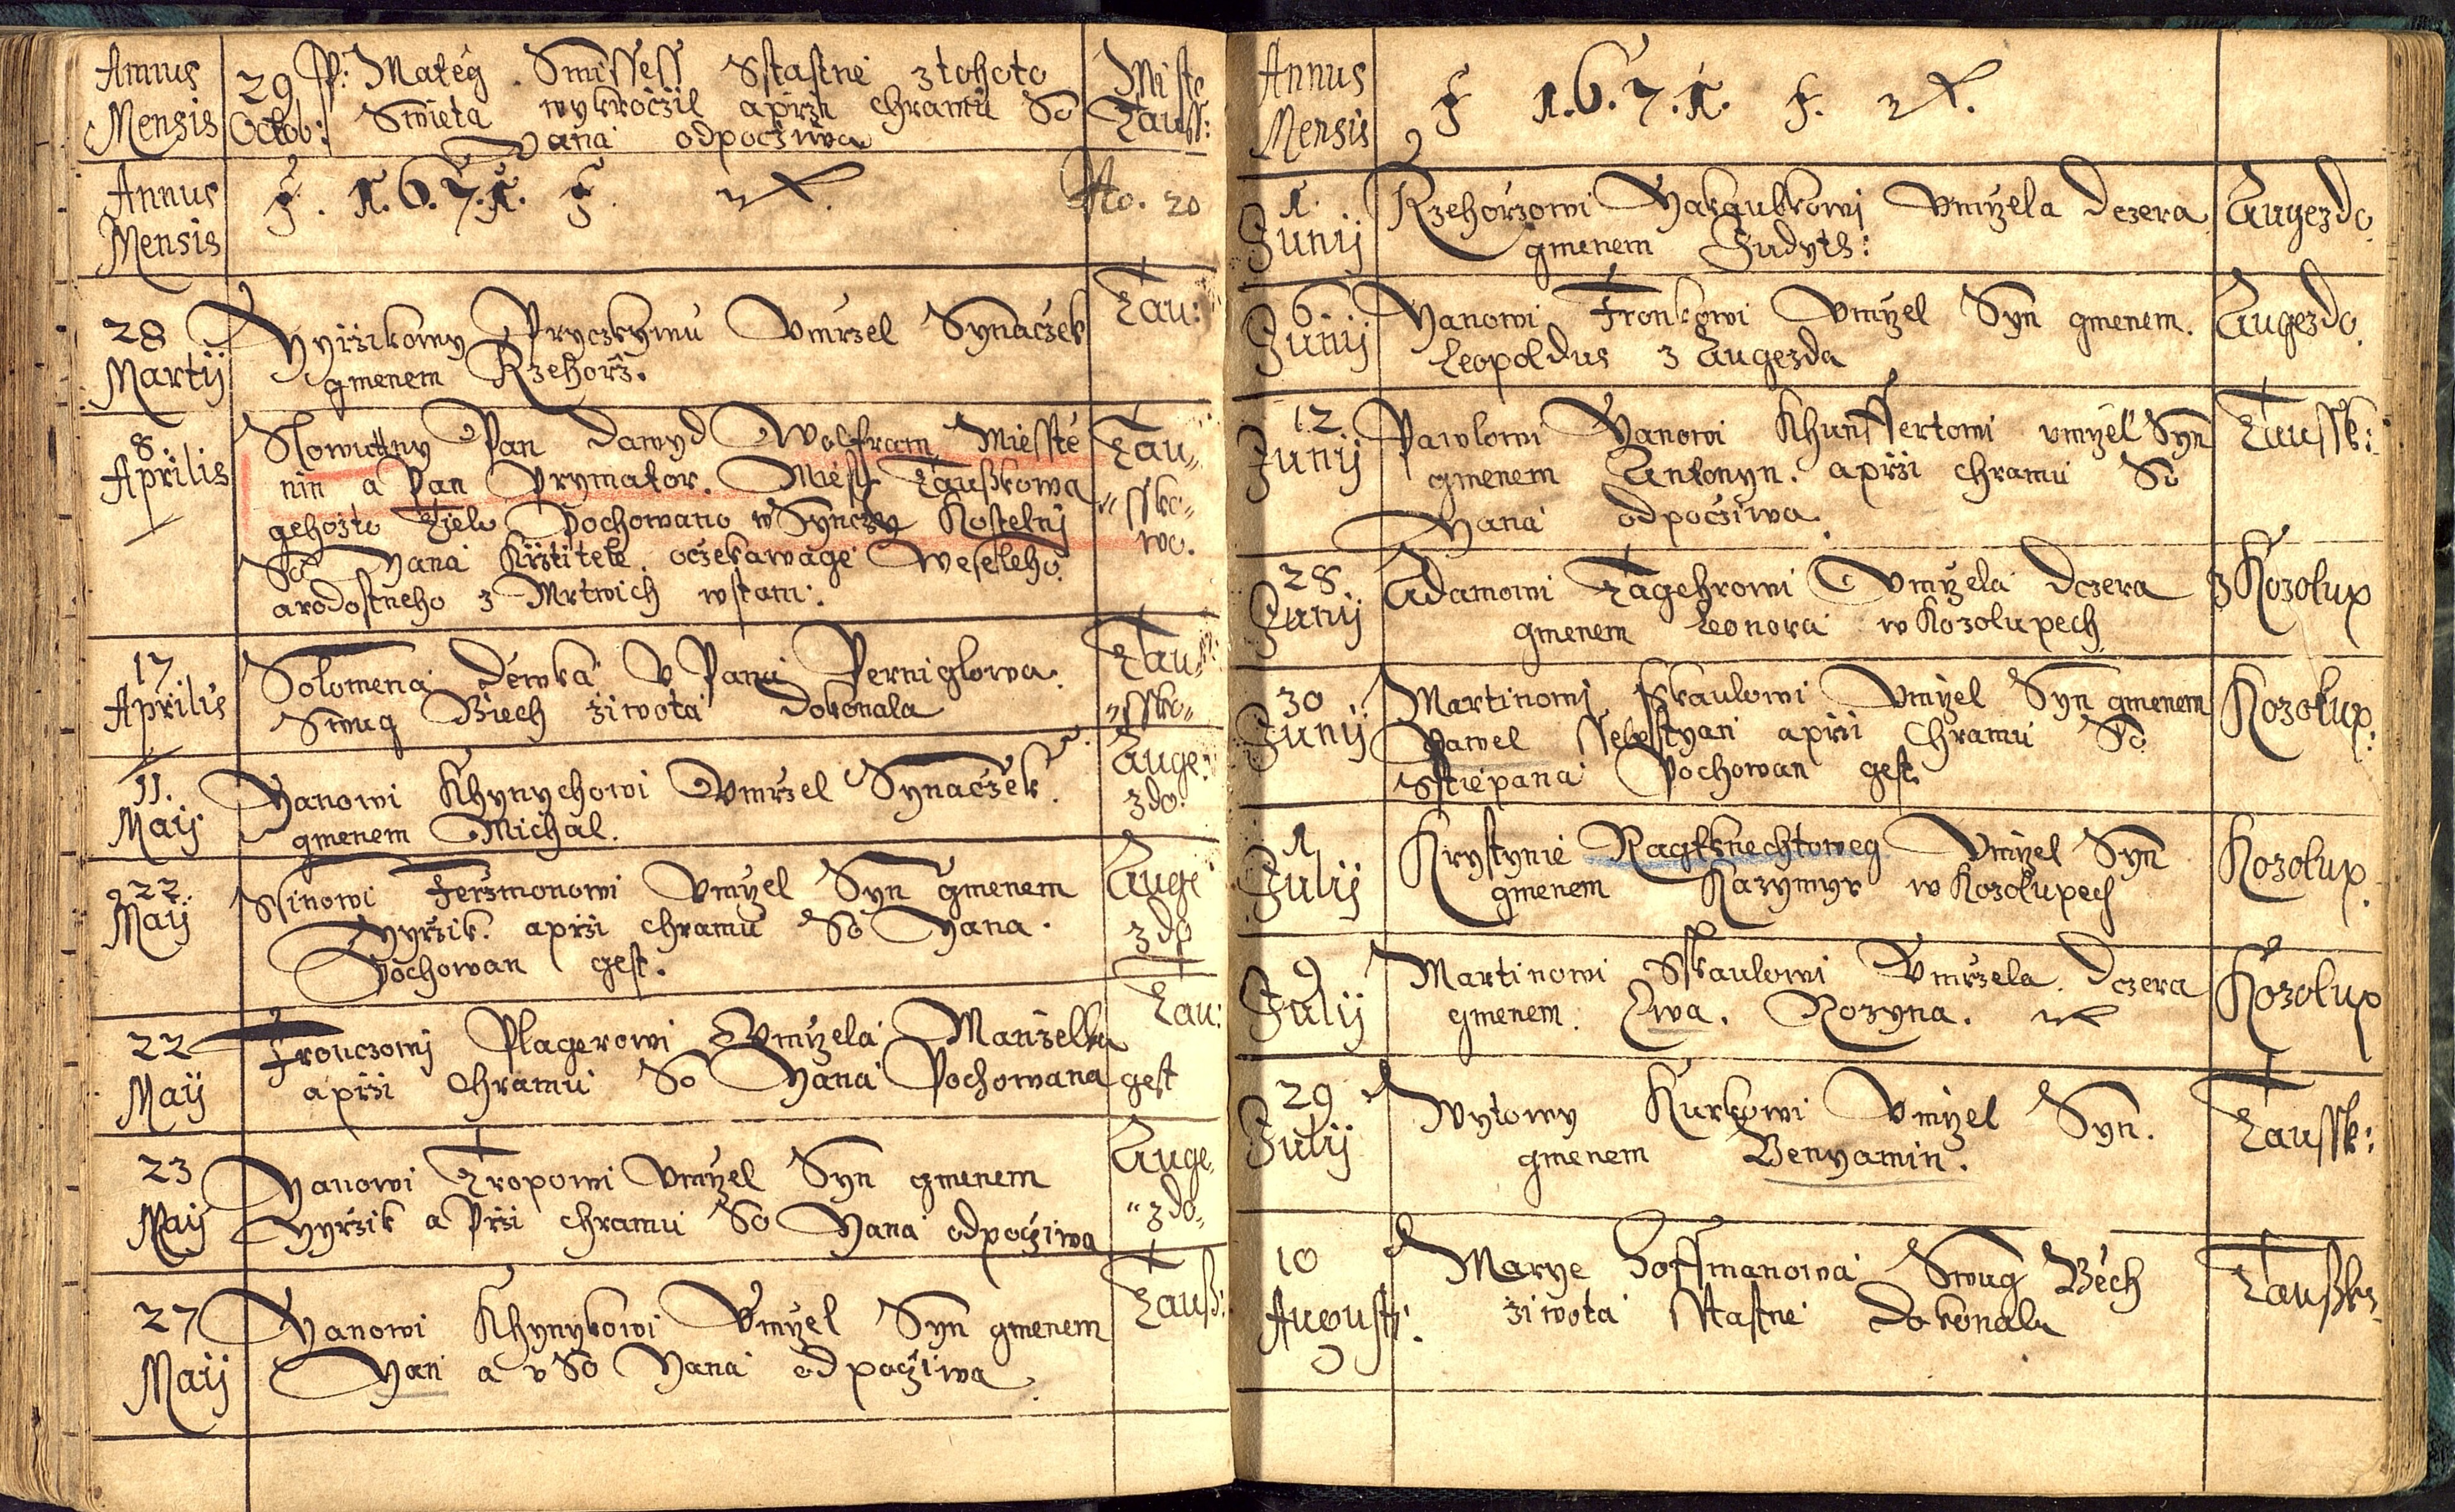 Annus
Mensis
29
Octob:
P: Mateg Smissess Sstastne z tohoto
Swieta wykroczil a przi chramu So
Yana odpocziwa
Miste
Tauss:
Annus
Mensis
1.6.7.1.
No. 20
28
Martij
Yyrzikowy Pryczkymu Vmrzel Synaczek
gmenem Rzehorz.
Tau:
8
Aprilis
Slowutny Pan Dawyd Wolfram Miesste
nin a Pan Prymator. Miest: Taußkowa
gehozto Tielo Pochowano w Synczy Kostelnj
So Yana Krztitele. oczekawage Weseleho
a rodostneho z Mrtwich wstani:
Tau„
„ssko„
wo.
17
Aprilis
Solomena Dewka V Pana Perniglowa.
Swug Biech ziwota dokonala
Tau„
„ssko„
11.
Maij
Yanowi Khynychowi Vmrzel Synaczek.
gmenem Michal.
Auge:
zdo.
22.
Maij
Ssinowi Ferzmonowi Vmrzel Syn gmenem
Yyrzik. a przi chramu So Yana.
Pochowan gest.
Auge
zdo
22
Maij
Fronczowj Plagerowi Vmrzela Manzelka
a przi Chramu So Yana Pochowana gest
Tau:
23
Maij
Yanowi Tropowi Vmrzel Syn gmenem
Yyrzik a Przi chramu So Yana odpocziwa
Auge
„zdo„
27
Maij
Yanowi Khynykowi Vmrzel Syn gmenem
Yan a v So Yana odpocziwa.
Tauß:
Annus
Mensis
1.6.7.1.
1.
Junij
Rzehorzowi Yakaubkowi Vmrzela dczera
gmenem Judyth:
Augezdo
6
Junij
Yanowi Fronkowi Vmrzel Syn gmenem.
Leopoldus z Augezda
Augezdo.
12
Junij
Pawlowi Yanowi Khunssertowi vmrzel Syn
gmenem Antonyn. a przi chramu So
Yana odpocziwa.
Taussk:
28
Junij
Adamowi Tagehrowi Vmrzela dczera
gmenem Leonora w Kozolupech
z Kozolup
30
Junij
Martinowi Skaulowi Vmrzel Syn gmenem
Pawel Ssebestyan a przi Chramu So
Sstiepana Pochowan gest
Kozolup:
1
Julij
Krystynie Ragtknechtoweg Vmrzel Syn
gmenem Kazymyr w Kozolupech
Kozolup.
9
Julij
Martinowi Sskaulowi Vmrzela dczera
gmenem. Ewa. Rozyna.
Kozolup
29
Julij
Wytowy Kurkowi Vmrzel Syn.
gmenem Benyamin.
Taussk:
10
Augusti.
Marye Hoffmanowa Swug Bech
ziwota sstastne dokonala
Taußk: